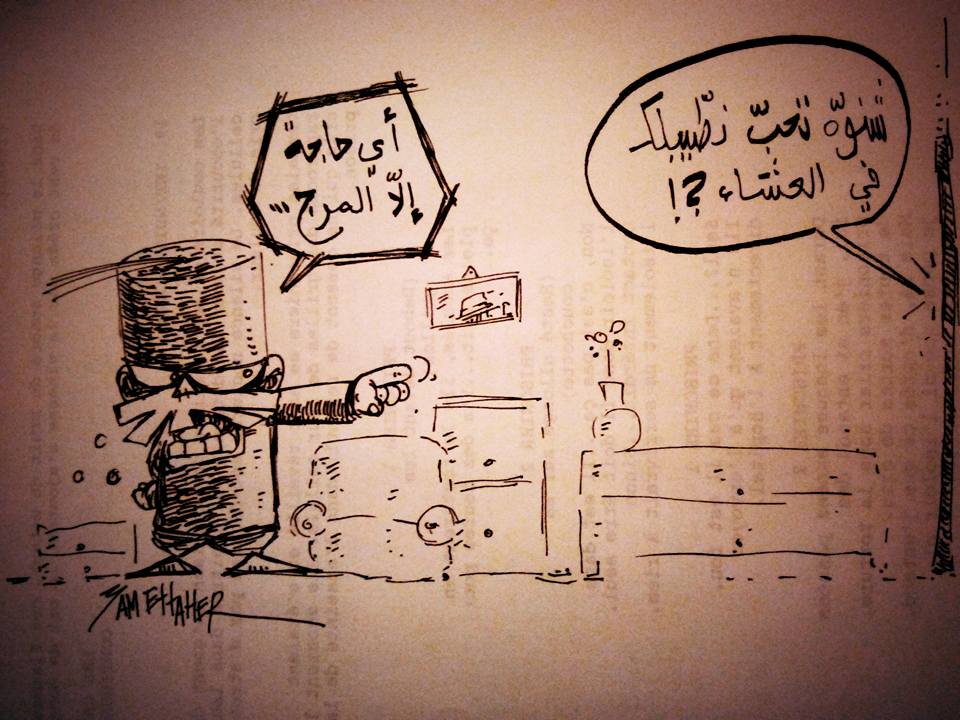 شنوّه تحبّ نطّيبلك
في العشاء ?!
أي حاجة
إلاّ المرج ...
SAM ETTAHER